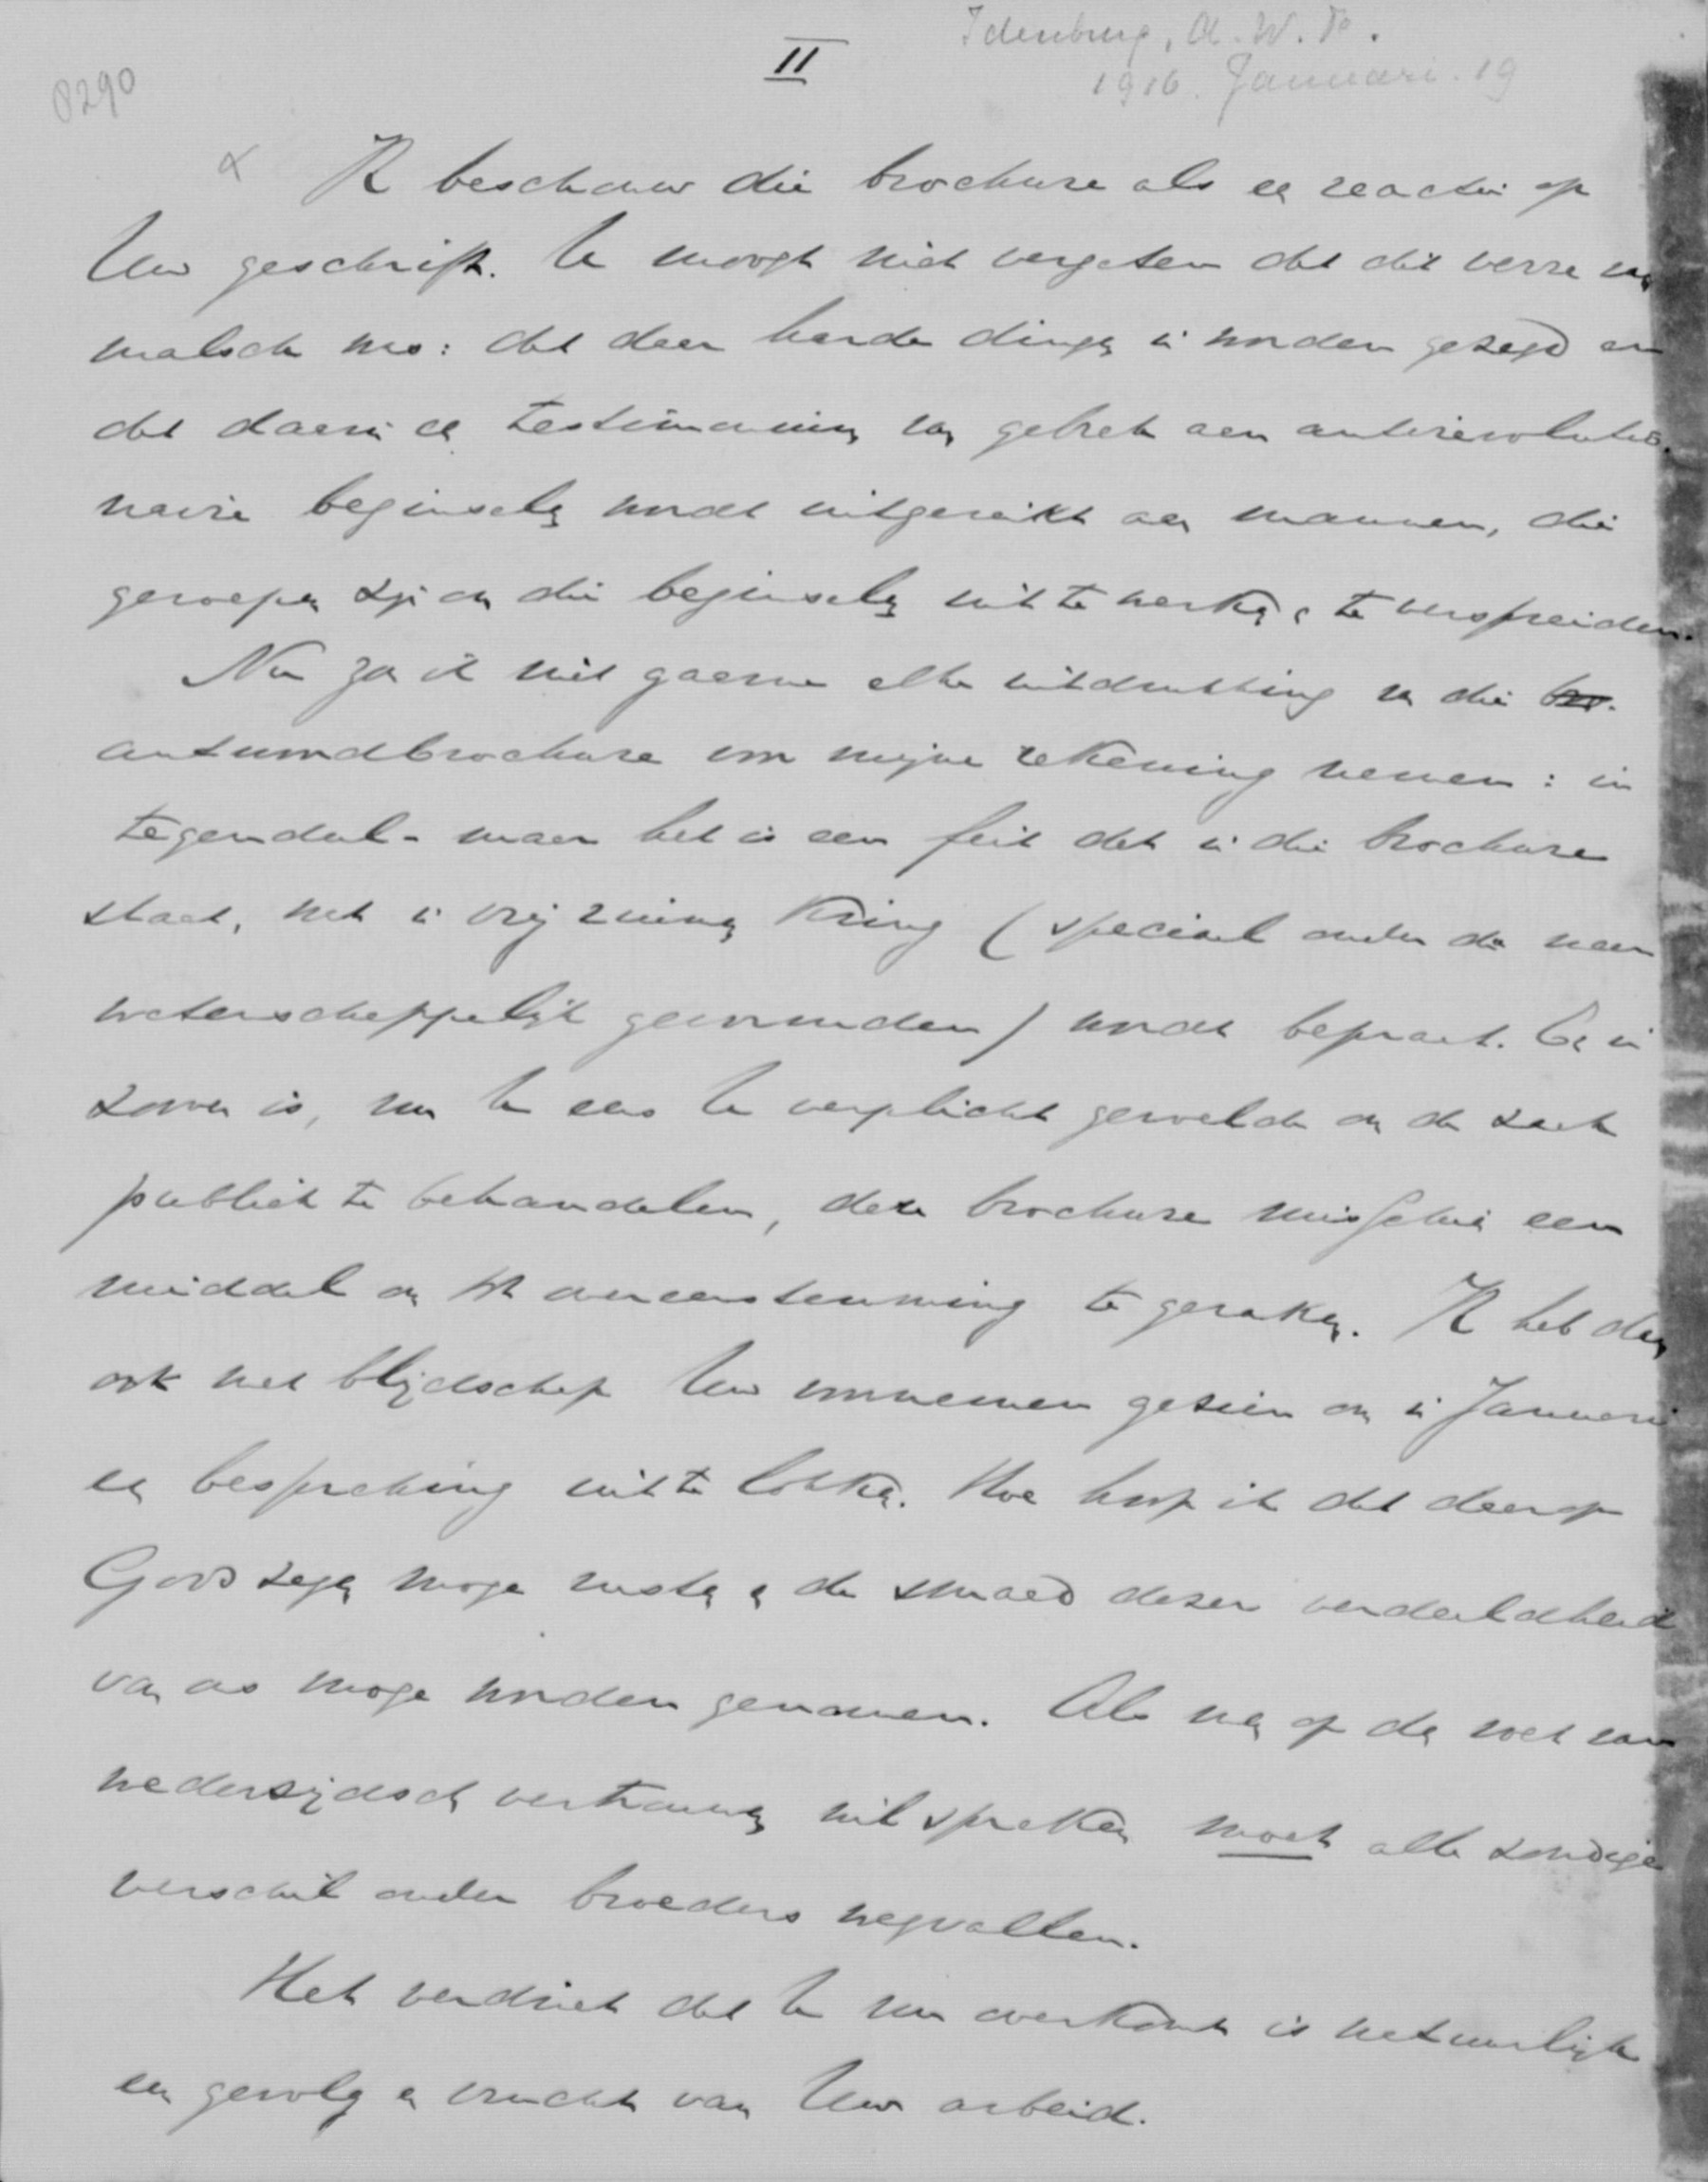 Idenburg, A.W.F.
II
1916. Januari. 19
8290
Ik beschouw die brochure als een reactie op
Uw geschrift. U moogt niet vergeten dat dit verre van
malsch was: dat daar harde dingen in worden gezegd en
dat daarin een testimonium van gebrek aan antirevolutio-
naire beginselen wordt uitgereikt aan mannen, die
geroepen zijn om die beginselen uit te werken en te verspreiden.
Nu zou ik niet gaarne elke uitdrukking van die
antwoordbrochure voor mijne rekening nemen: in
tegendeel - maar het is een feit dat in die brochure
staat, wat in vrij ruimen kring (speciaal onder de
wetenschappelijk gevormden) wordt bepraat. En in
zoover is, nu U eens U verplicht gevoelde om de zaak
publiek te behandelen, deze brochure misschien een
middel om tot overeenstemming te geraken. Ik heb dan
ook met blijdschap Uw voornemen gezien om in Januari
een bespreking uit te lokken. Hoe hoop ik dat daarop
Gods zegen moge rusten en de smaad dezer verdeeldheid
van ons moge worden genomen. Als men op den voet van
wederzijdsch vertrouwen wil spreken moet alle zondige
verschil onder broeders wegvallen.
Het verdriet dat U nu overkomt is natuurlijk
een gevolg en vrucht van Uw arbeid.